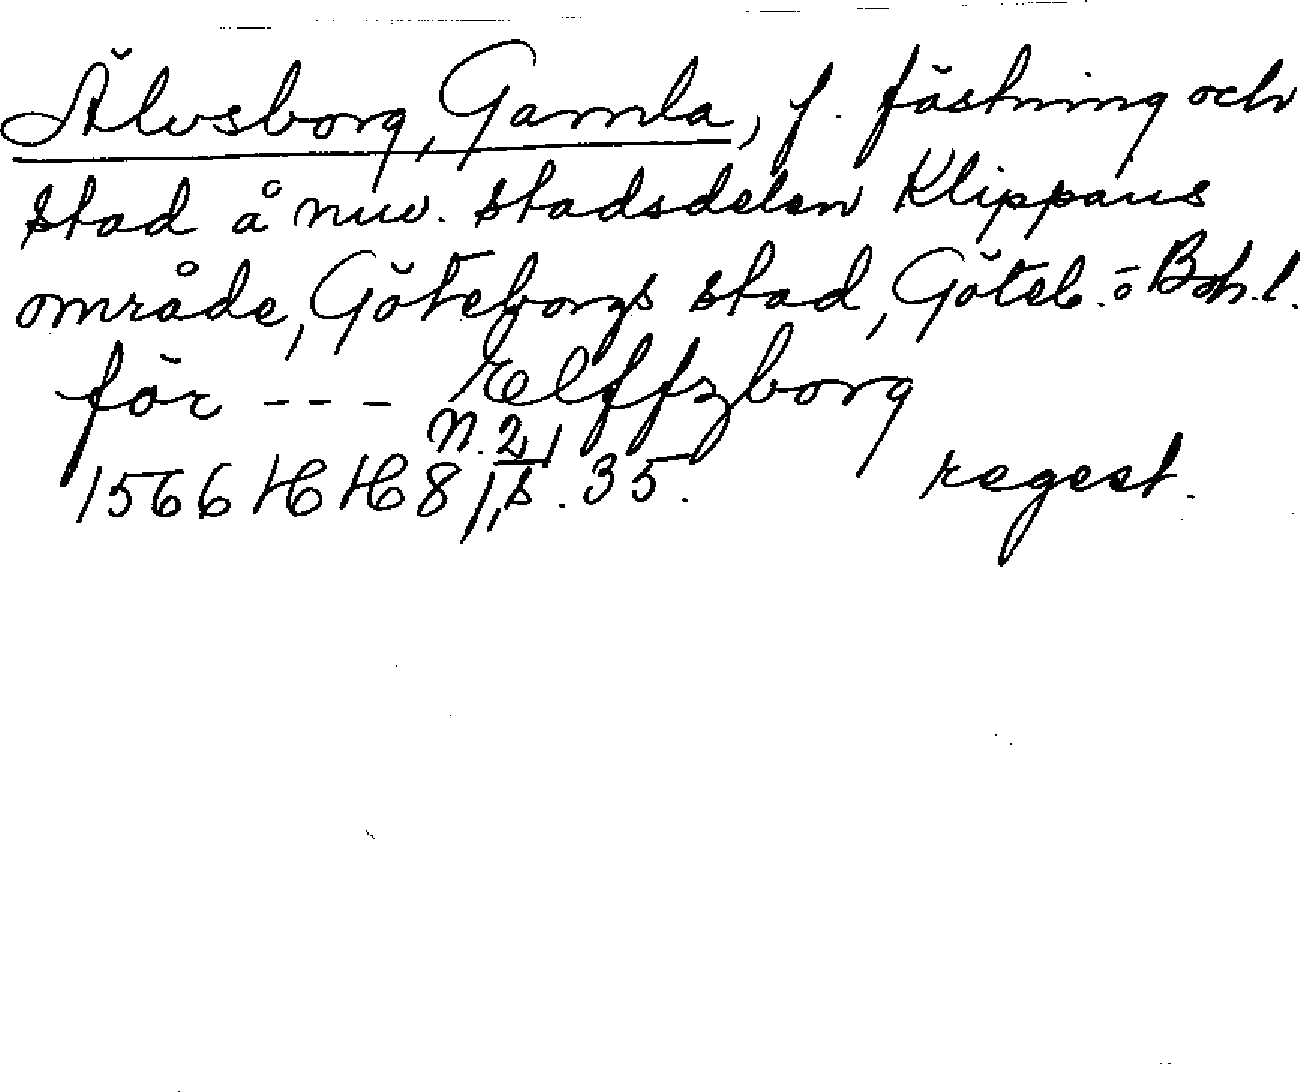 Älvsborg, Gamla, f. fästning och
stad å nuv. stadsdelen Klippans
område, Göteborgs stad, Göteb. o Boh. l.
för --- Elffzborg
n. 21
1566 HH 8/1, s. 35. regest.